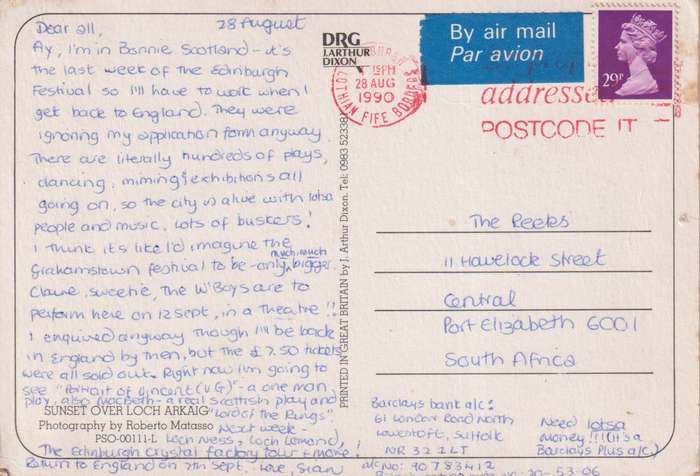 28 August
Dear all,
Ay, I'm in Bonnie Scotland – it's
the last week of the Edinburgh
Festival so I'll have to work when I
get back to England. They were
ignoring my application form anyway
There are literally hundreds of plays,
dancing, miming & exhibitions all
going on, so the city is alive with lotsa
people and music, lots of buskers!
I think it's like I'd imagine the
Grahamstown festival to be – only much, much bigger.
Claire, sweetie, the W'Boys are to
perform here on 12 Sept, in a Theatre!!
I enquired anyway though I'll be back
in England by then, but the £7.50 tickets
were all sold out. Right now I'm going to
see "Portrait of Vincent (VG)" – a one man
play, also Macbeth – a real Scottish play and
"Lord of the Rings".
Next week –
Loch Ness, Loch Lomond,
The Edinburgh Crystal factory tour + more!
Return to England on 7th Sept. Love, Sian
SUNSET OVER LOCH ARKAIG
Photography by Roberto Matasso
PSO-00111-L
DRG
J. ARTHUR
DIXON
PRINTED IN GREAT BRITAIN by J. Arthur Dixon. Tel: 0983 523381
By air mail
Par avion
29P
15PM
28 AUG
1990
LOTHIAN FIFE BORDERS
addressed
POSTCODE IT
The Reeks
11 Havelock Street
Central
Port Elizabeth 6001
South Africa
Barclays bank a/c:
61 London Road North
Lowestoft, Suffolk
NR32 1LT
a/c No: 90783412
20-53-06
Need lotsa
money!!! (It's a
Barclays Plus a/c)